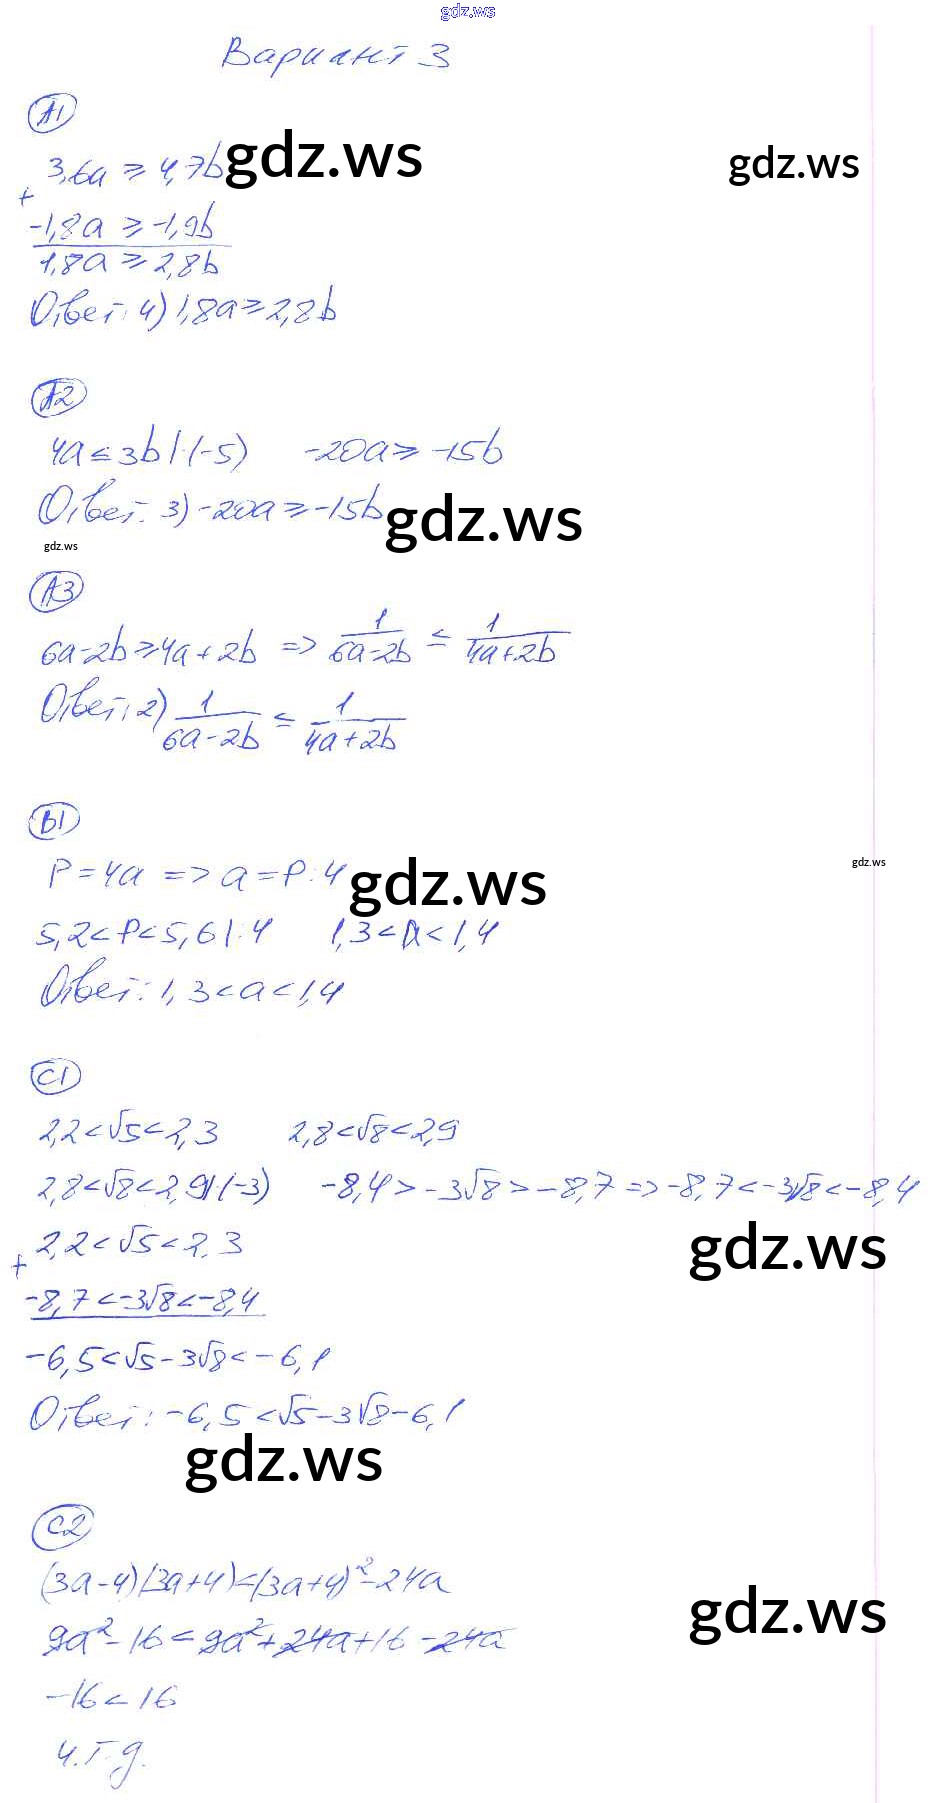 gdz.ws
Вариант 3
А1
3,6a ⩾ 4,7b gdz.ws gdz.ws
+
-1,8a ⩾ -1,9b
1,8a ⩾ 2,8b
Ответ: 4) 1,8a ⩾ 2,8b
А2
4a ⩽ 3b |·(-5) -20a ⩾ -15b
Ответ: 3) -20a ⩾ -15b gdz.ws
gdz.ws
А3
6a-2b ⩾ 4a+2b => 1/(6a-2b) ⩽ 1/(4a+2b)
Ответ: 2) 1/(6a-2b) ⩽ 1/(4a+2b)
В1
P=4a => a=P:4 gdz.ws gdz.ws
5,2<P<5,6 |:4 1,3<a<1,4
Ответ: 1,3<a<1,4
С1
2,2<√5<2,3 2,8<√8<2,9
2,8<√8<2,9 |·(-3) -8,4>-3√8>-8,7 => -8,7<-3√8<-8,4
+ 2,2<√5<2,3 gdz.ws
-8,7<-3√8<-8,4
-6,5<√5-3√8<-6,1
Ответ: -6,5<√5-3√8-6,1
gdz.ws
С2
(3a-4)(3a+4)<(3a+4)²-24a gdz.ws
9a²-16<9a²+24a+16-24a
-16<16
ч.т.д.